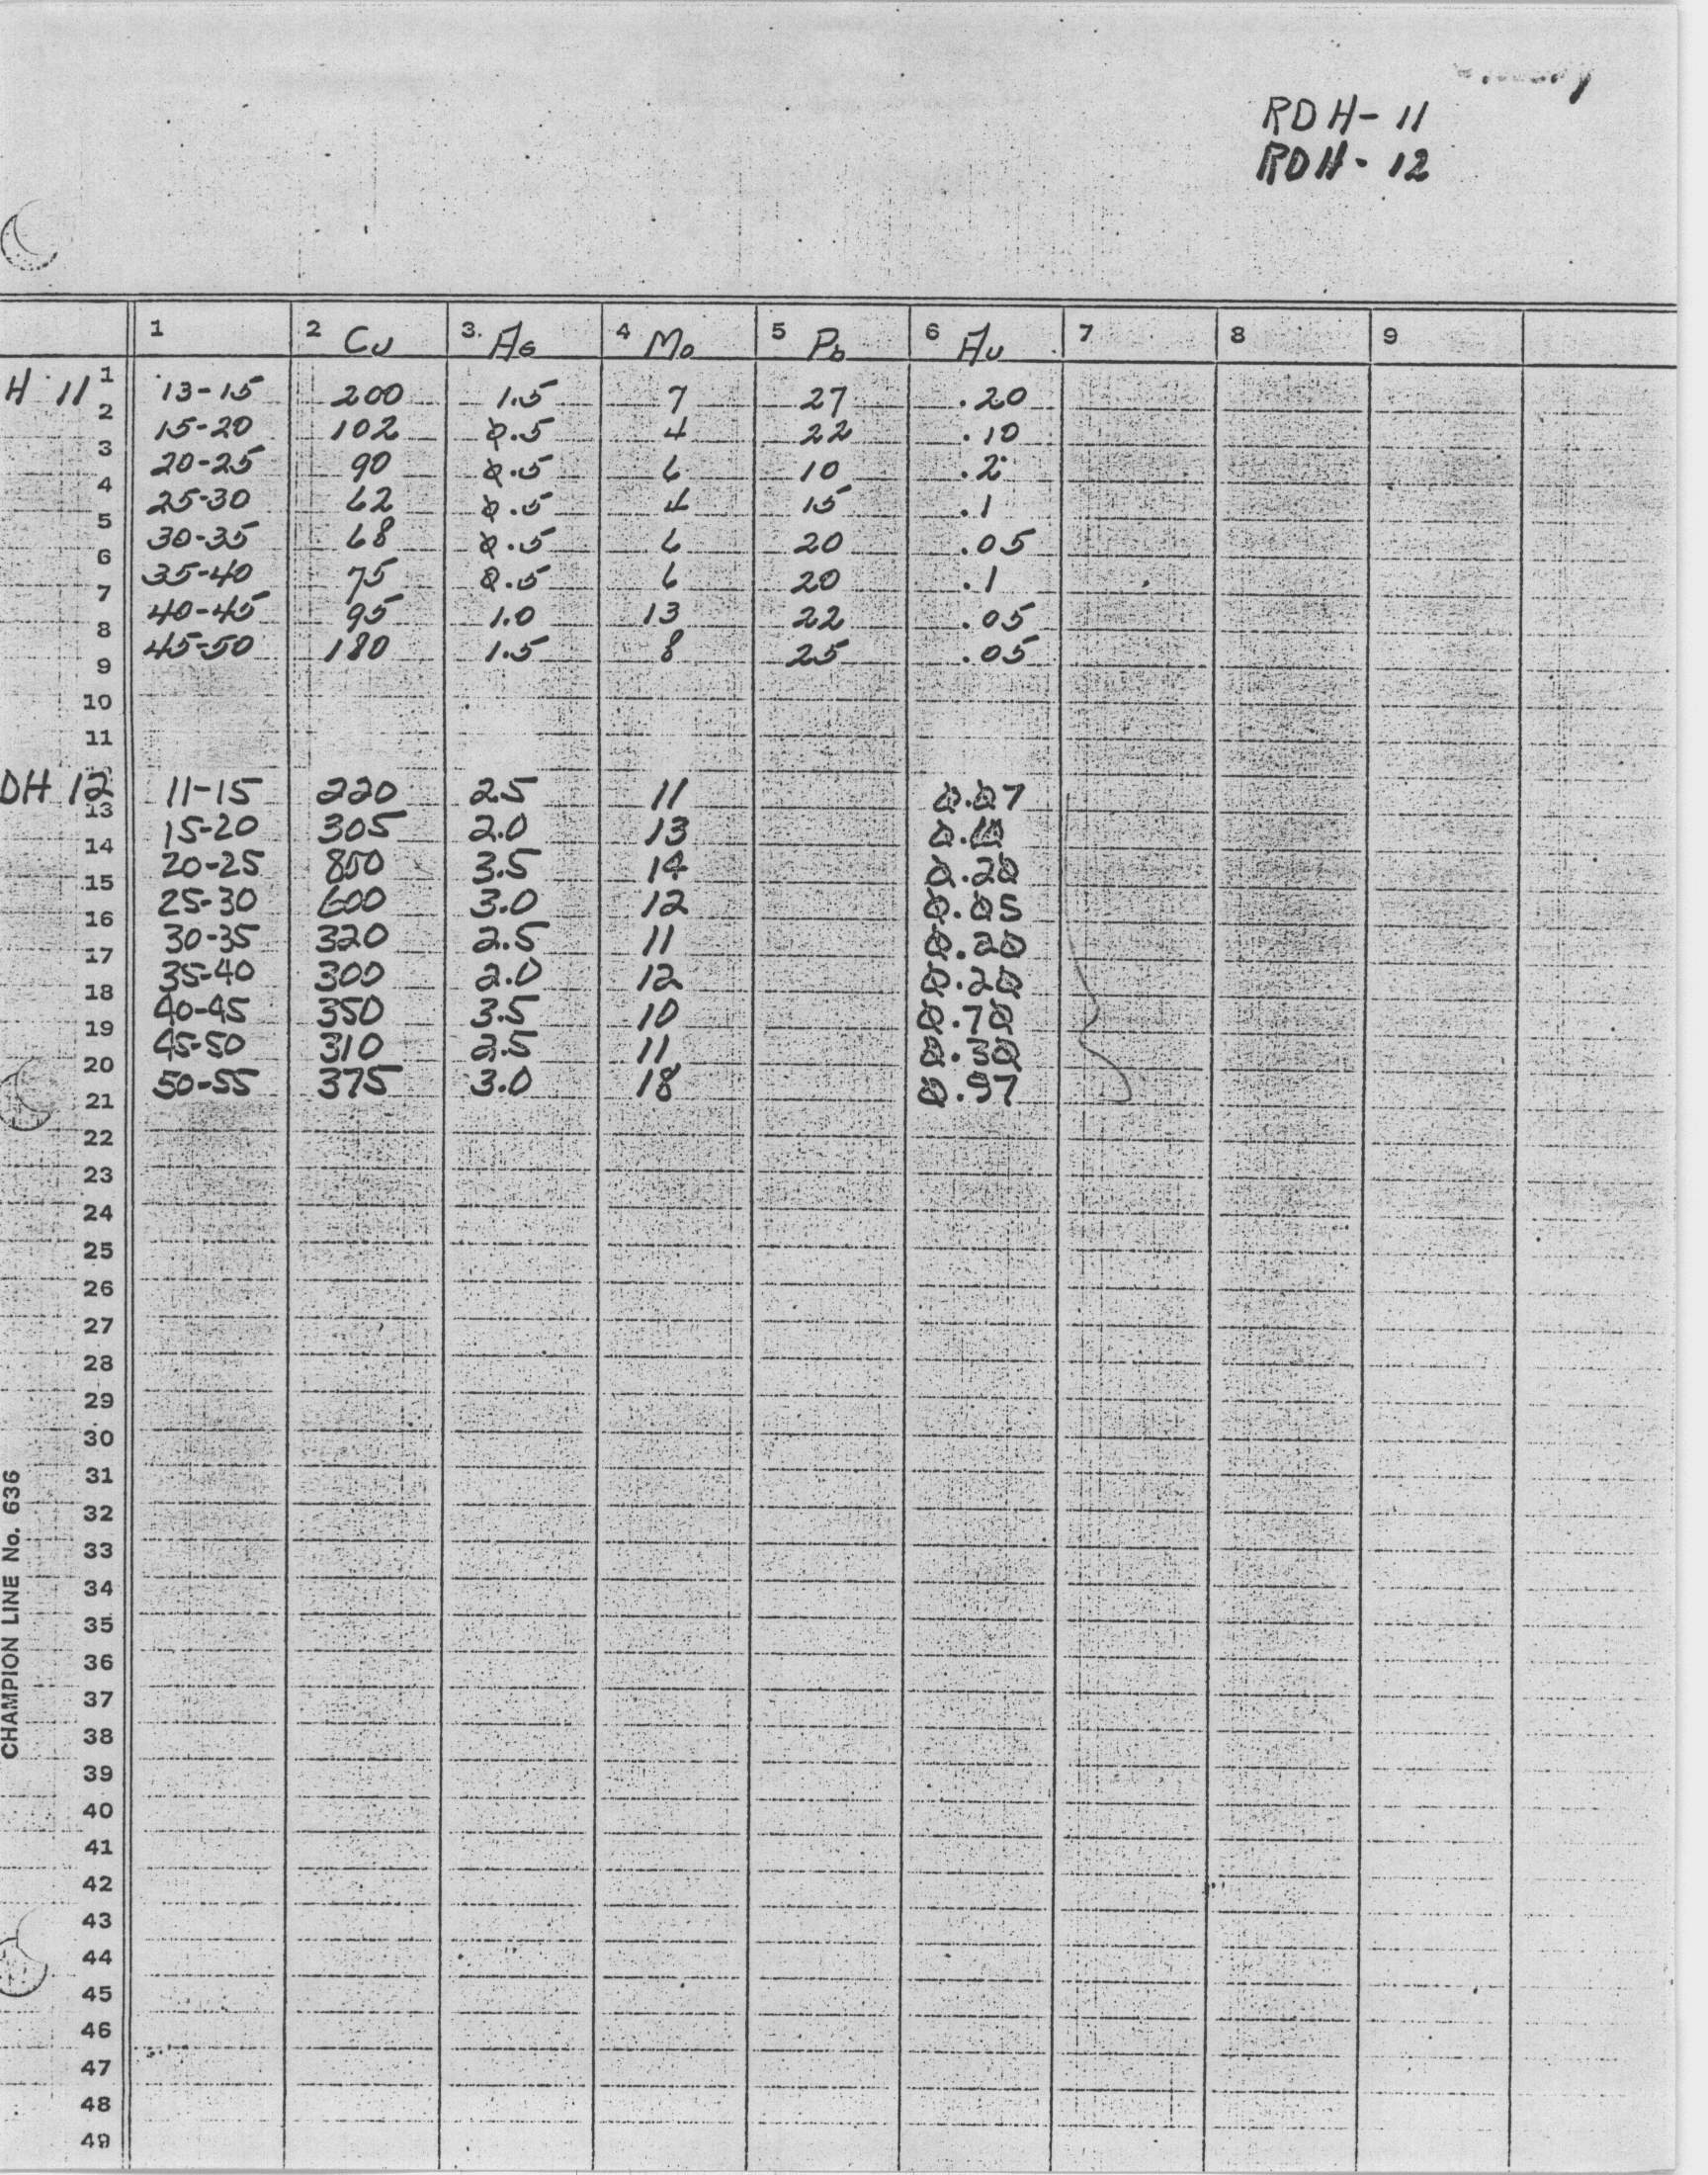 RDH-11
RDH-12
1 2 Cu 3. AG 4 Mo 5 Pb 6 Au 7 8 9
1
H 11 13-15 200 1.5 7 27 .20
2
15-20 102 0.5 4 22 .10
3
20-25 90 0.5 6 10 .2
4
25-30 62 0.5 4 15 .1
5
30-35 68 0.5 6 20 .05
6
35-40 75 0.5 6 20 .1
7
40-45 95 1.0 13 22 .05
8
45-50 180 1.5 8 25 .05
9
10
11
DH 12 11-15 220 2.5 11 0.07
13
15-20 305 2.0 13 0.10
14
20-25 850 3.5 14 0.20
15
25-30 600 3.0 12 0.05
16
30-35 320 2.5 11 0.20
17
35-40 300 2.0 12 0.20
18
40-45 350 3.5 10 0.70
19
45-50 310 2.5 11 0.30
20
50-55 375 3.0 18 0.97
21
22
23
24
25
26
27
28
29
30
31
32
33
34
35
36
37
38
39
40
41
42
43
44
45
46
47
48
49
CHAMPION LINE No. 636